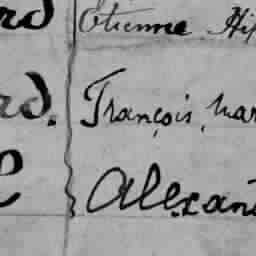 rd Etienne Hip
rd. François, mar
e Alexan